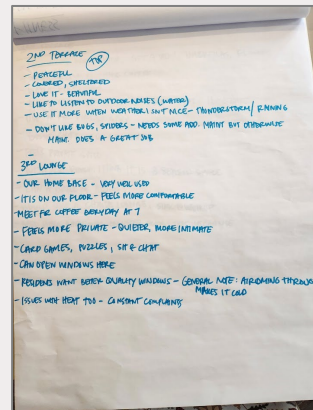 2ND TERRACE
- PEACEFUL
- COVERED, SHELTERED
- LOVE IT - BEAUTIFUL
- LIKE TO LISTEN TO OUTDOOR NOISES (WATER)
- USE IT MORE WHEN WEATHER ISN'T NICE - THUNDERSTORM / RAINING
- DON'T LIKE BUGS, SPIDERS - NEEDS SOME ADD. MAINT BUT OTHERWISE
MAINT. DOES A GREAT JOB
-
3RD LOUNGE
- OUR HOME BASE - VERY WELL USED
- IT IS ON OUR FLOOR - FEELS MORE COMFORTABLE
- MEET FOR COFFEE EVERYDAY AT 7
- FEELS MORE PRIVATE - QUIETER, MORE INTIMATE
- CARD GAMES, PUZZLES, SIT & CHAT
- CAN OPEN WINDOWS HERE
- RESIDENTS WANT BETTER QUALITY WINDOWS - GENERAL NOTE: AIR COMING THROUGH
MAKES IT COLD
- ISSUES WITH HEAT TOO - CONSTANT COMPLAINTS